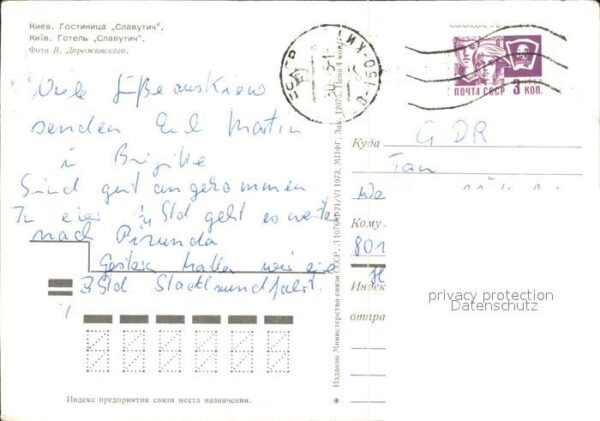 Киев. Гостиница „Славутич".
Київ. Готель „Славутич".
Фото В. Дорожинского.
ПОЧТА СССР 3 КОП.
Viele Grüße aus Kiew
senden Euch Martin
u Brigitte
Sind gut angekommen
In einer 1/4 Std geht es weiter
nach Pizunda
Gestern hatten wir eine
3 Std Stadtrundfahrt.
Куда
GDR
Кому
801
Индек
отпра
privacy protection
Datenschutz
Индекс предприятия связи места назначения.
Издание Министерства связи СССР.